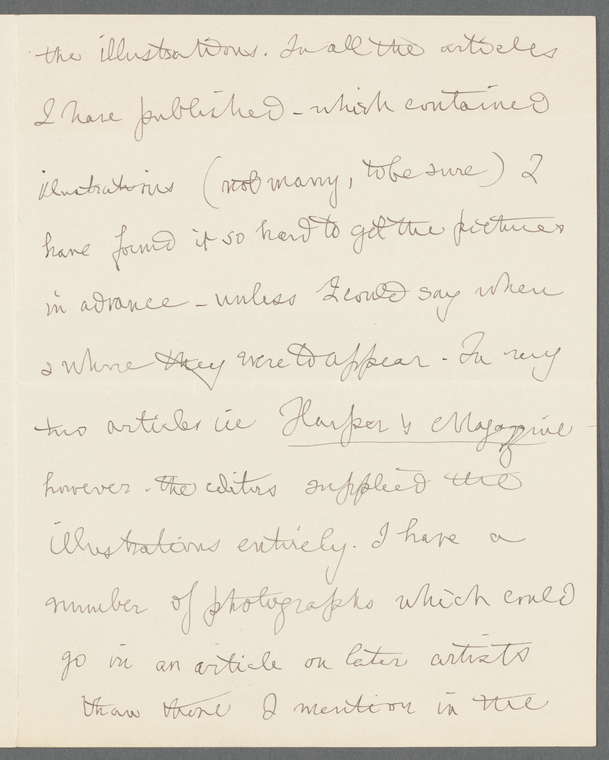 the illustrations. In all the articles
I have published - which contained
illustrations (not many, to be sure) I
have found it so hard to get the pictures
in advance - unless I could say when
& where they were to appear. In my
two articles in Harper's Magazine -
however - the editors supplied the
illustrations entirely. I have a
number of photographs which could
go in an article on later artists
than those I mention in the